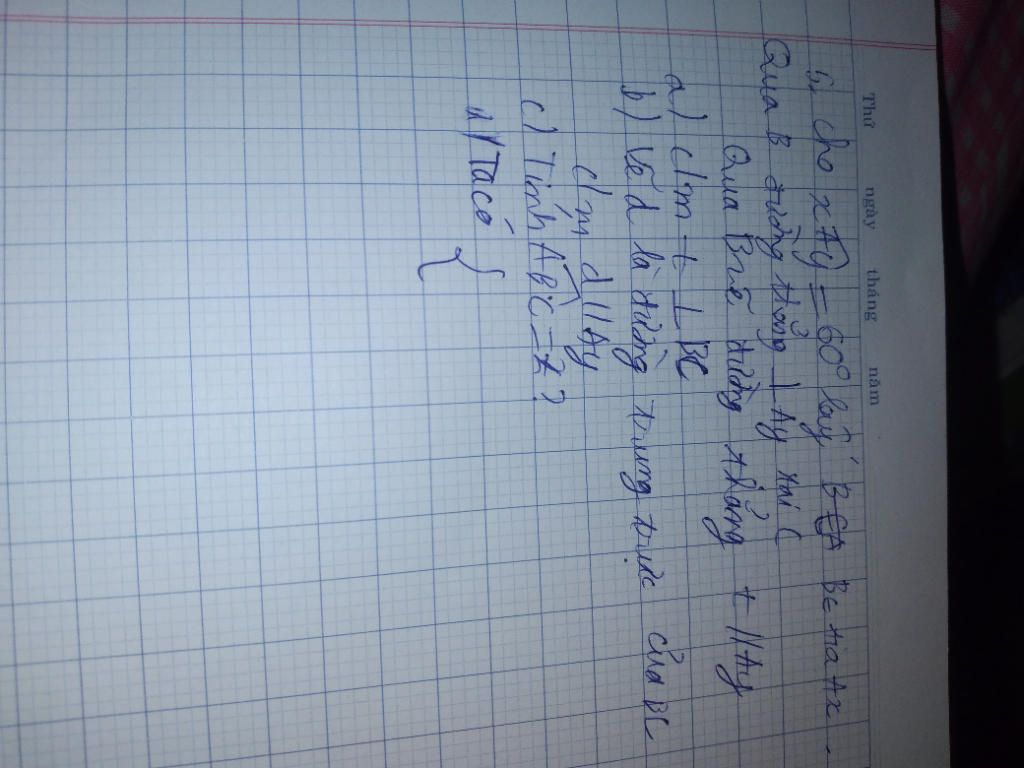 Thứ ngày tháng năm
5, cho xAy = 60° lấy B ∈ tia Ax.
Qua B đường thẳng ⊥ Ay tại C
Qua B vẽ đường thẳng t // Ay
a) c/m t ⊥ BC
b) Vẽ d là đường trung trực của BC
c/m d // Ay
c) Tính ABC = ?
a) Ta có {